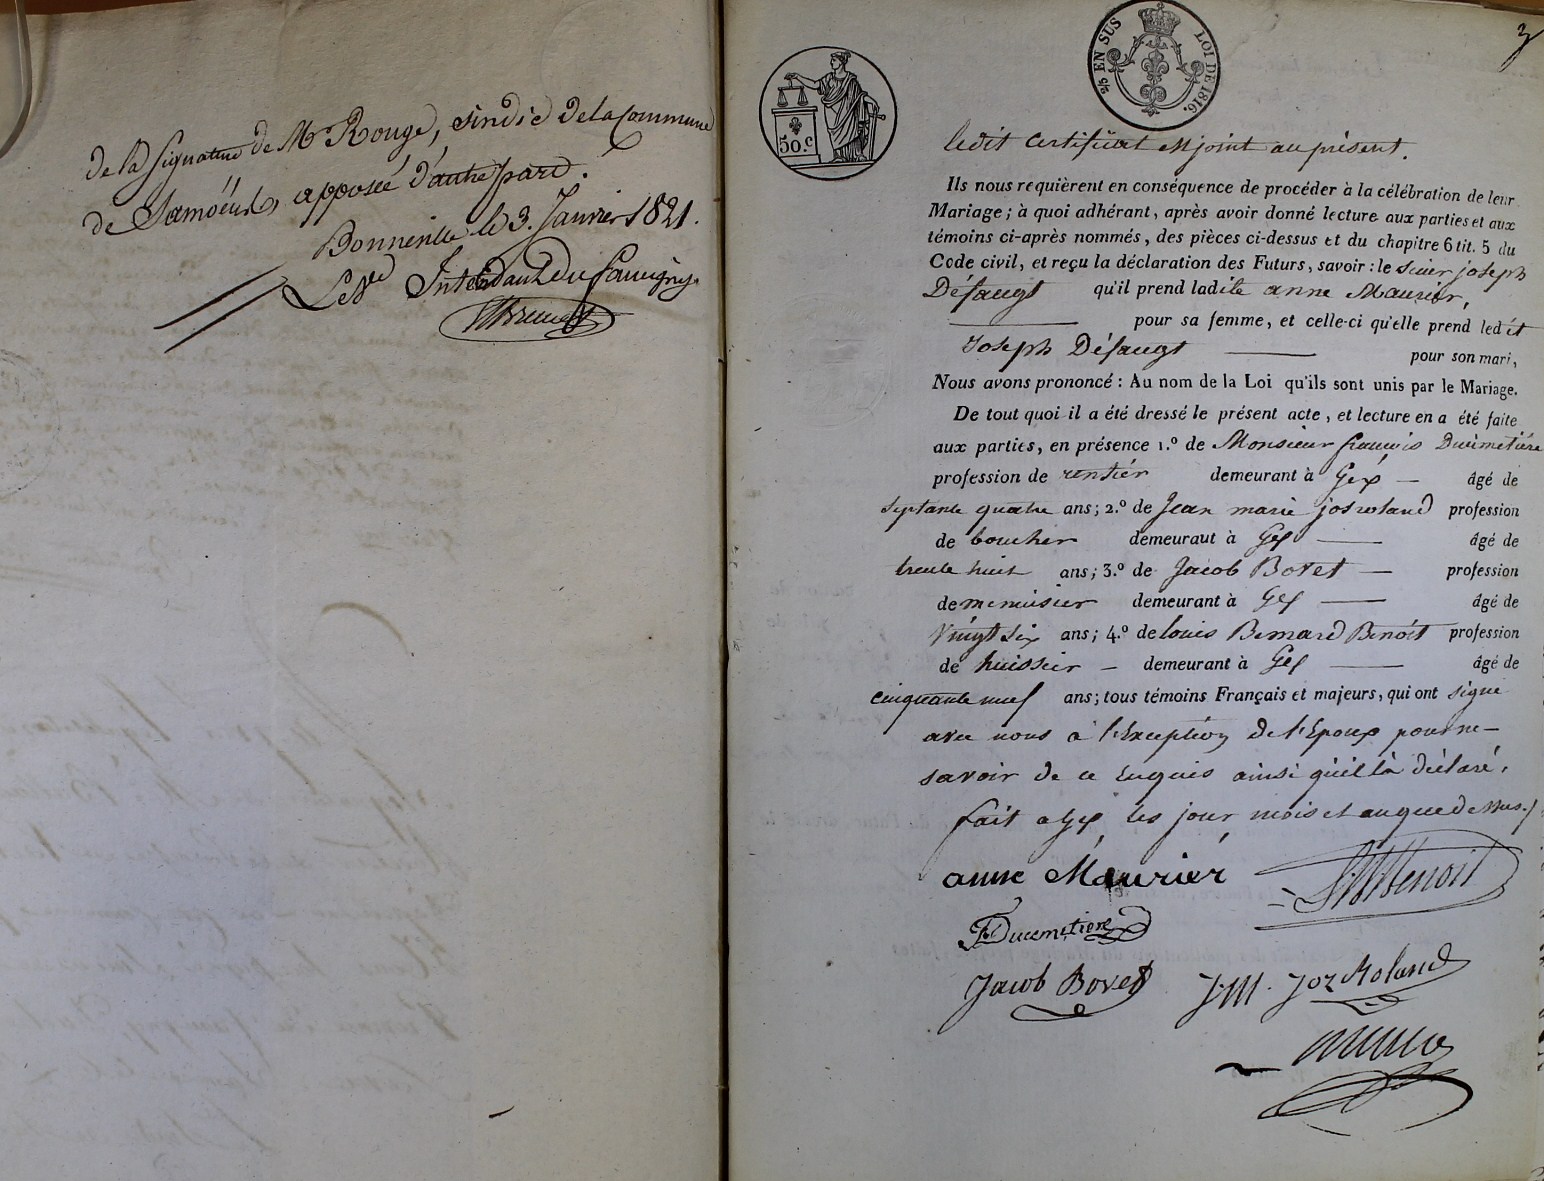 de la signature de Mr Rouge, sindic de la Commune
de Samoëns apposée d'autre part.
Bonneville le 3. Janvier 1821.
Intendant du faucigny
2/5 EN SUS LOI DE 1816.
50.c
3
ledit certificat est joint au présent.
Ils nous requièrent en conséquence de procéder à la célébration de leur
Mariage; à quoi adhérant, après avoir donné lecture aux parties et aux
témoins ci-après nommés, des pièces ci-dessus et du chapitre 6 tit. 5 du
Code civil, et reçu la déclaration des Futurs, savoir: le sieur joseph
Défaugt qu'il prend ladite anne Maurier,
pour sa femme, et celle-ci qu'elle prend ledit
Joseph Défaugt pour son mari,
Nous avons prononcé: Au nom de la Loi qu'ils sont unis par le Mariage.
De tout quoi il a été dressé le présent acte, et lecture en a été faite
aux parties, en présence 1.º de Monsieur françois Ducimetière
profession de rentiér demeurant à Géx – âgé de
septante quatre ans; 2.º de Jean marie josroland profession
de boucher demeuraut à Gex — âgé de
trente huit ans; 3.º de Jacob Bovet — profession
de menuisier demeurant à Gex — âgé de
vingt six ans; 4.º de louis Bernard Benoit profession
de huissier – demeurant à Gex — âgé de
cinquante neuf ans; tous témoins Français et majeurs, qui ont signé
avec nous à l'Exception de l'Epoux pour ne
savoir de ce Enquis ainsi qu'il l'à déclaré,
fait a Gex les jour mois et an que dessus./
anne Maurier Benoit
Ducemetiere
Jacob Bovet J.M. Joz Roland